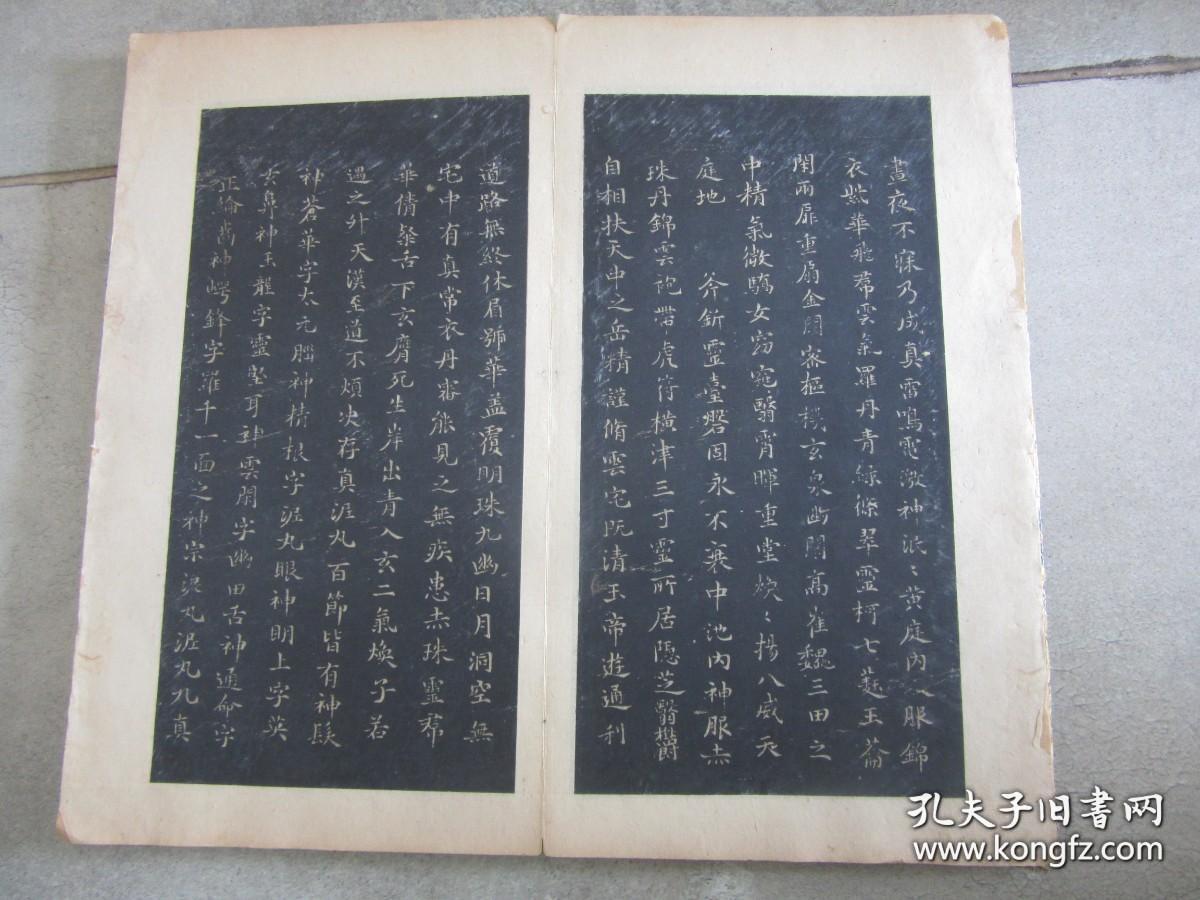 晝夜不寐乃成真雷鳴電激神泯〻黃庭內人服錦
衣紫華飛帬雲氣羅丹青綠條翠靈柯七蕤玉籥
閉兩扉重扇金關密樞機玄泉幽關高崔巍三田之
中精氣微驕女窈窕翳霄暉重堂煥〻揚八威天
庭地斧斫靈臺磐固永不衰中池內神服赤
珠丹錦雲袍帶虎符橫津三寸靈所居隱芝翳欝
自相扶天中之岳精謹脩雲宅既清玉帝遊通利
道路無終休眉號華盖覆明珠九幽日月洞空無
宅中有真常衣丹審能見之無疾患赤珠靈帬
華倩粲舌下玄膺死生岸出青入玄二氣煥子若
遇之升天漢至道不煩决存真泥丸百節皆有神髮
神蒼華字太元腦神精根字泥丸眼神明上字英
玄鼻神玉壟字靈堅耳神雲閑字幽田舌神通命字
正倫齒神崿鋒字羅千一面之神宗泥丸泥丸九真
孔夫子旧書网
www.kongfz.com